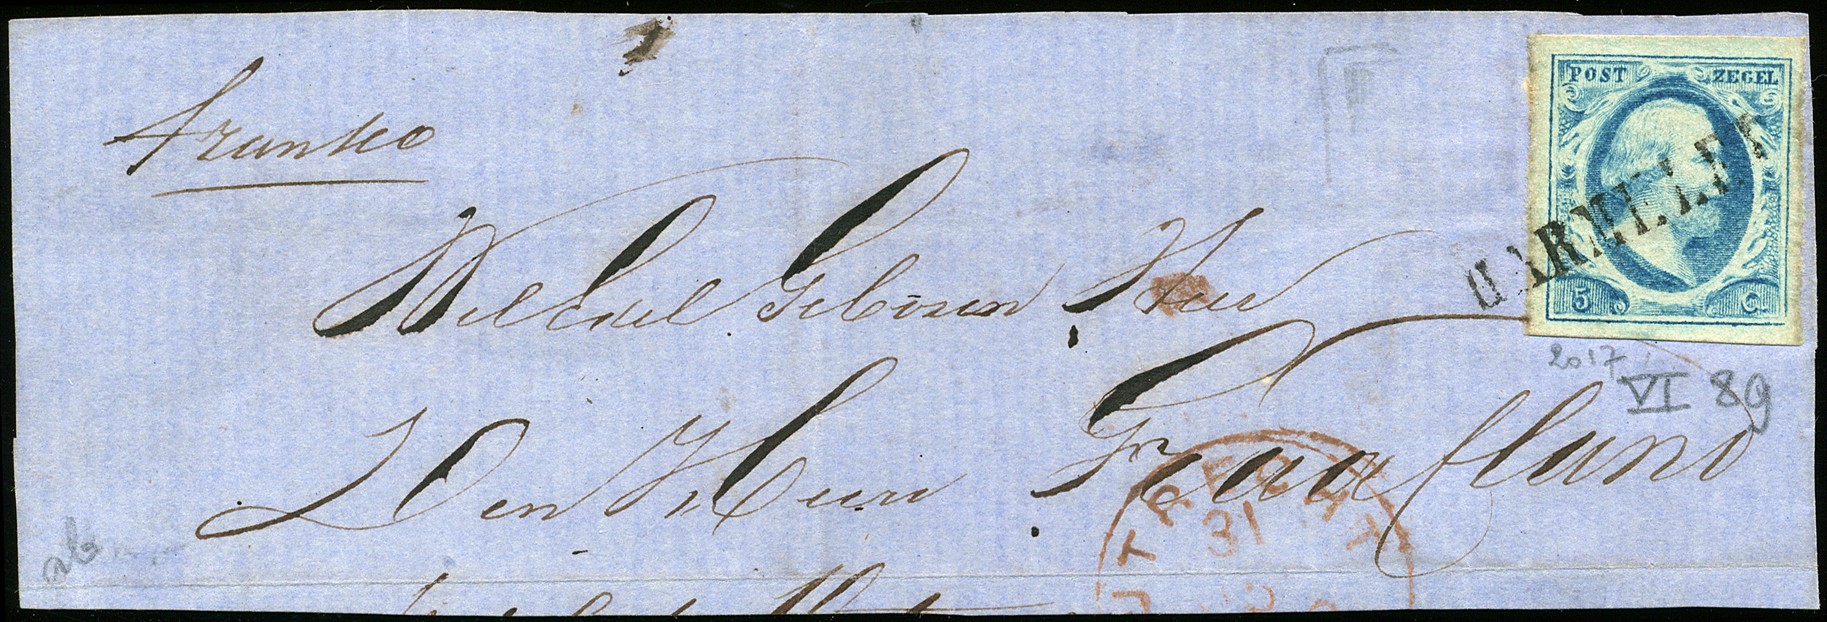 franko
POST ZEGEL
HARMELEN
5 C
Wel Edel Geboren Heer
2017
VI 89
Den Heer
UTRECHT
31